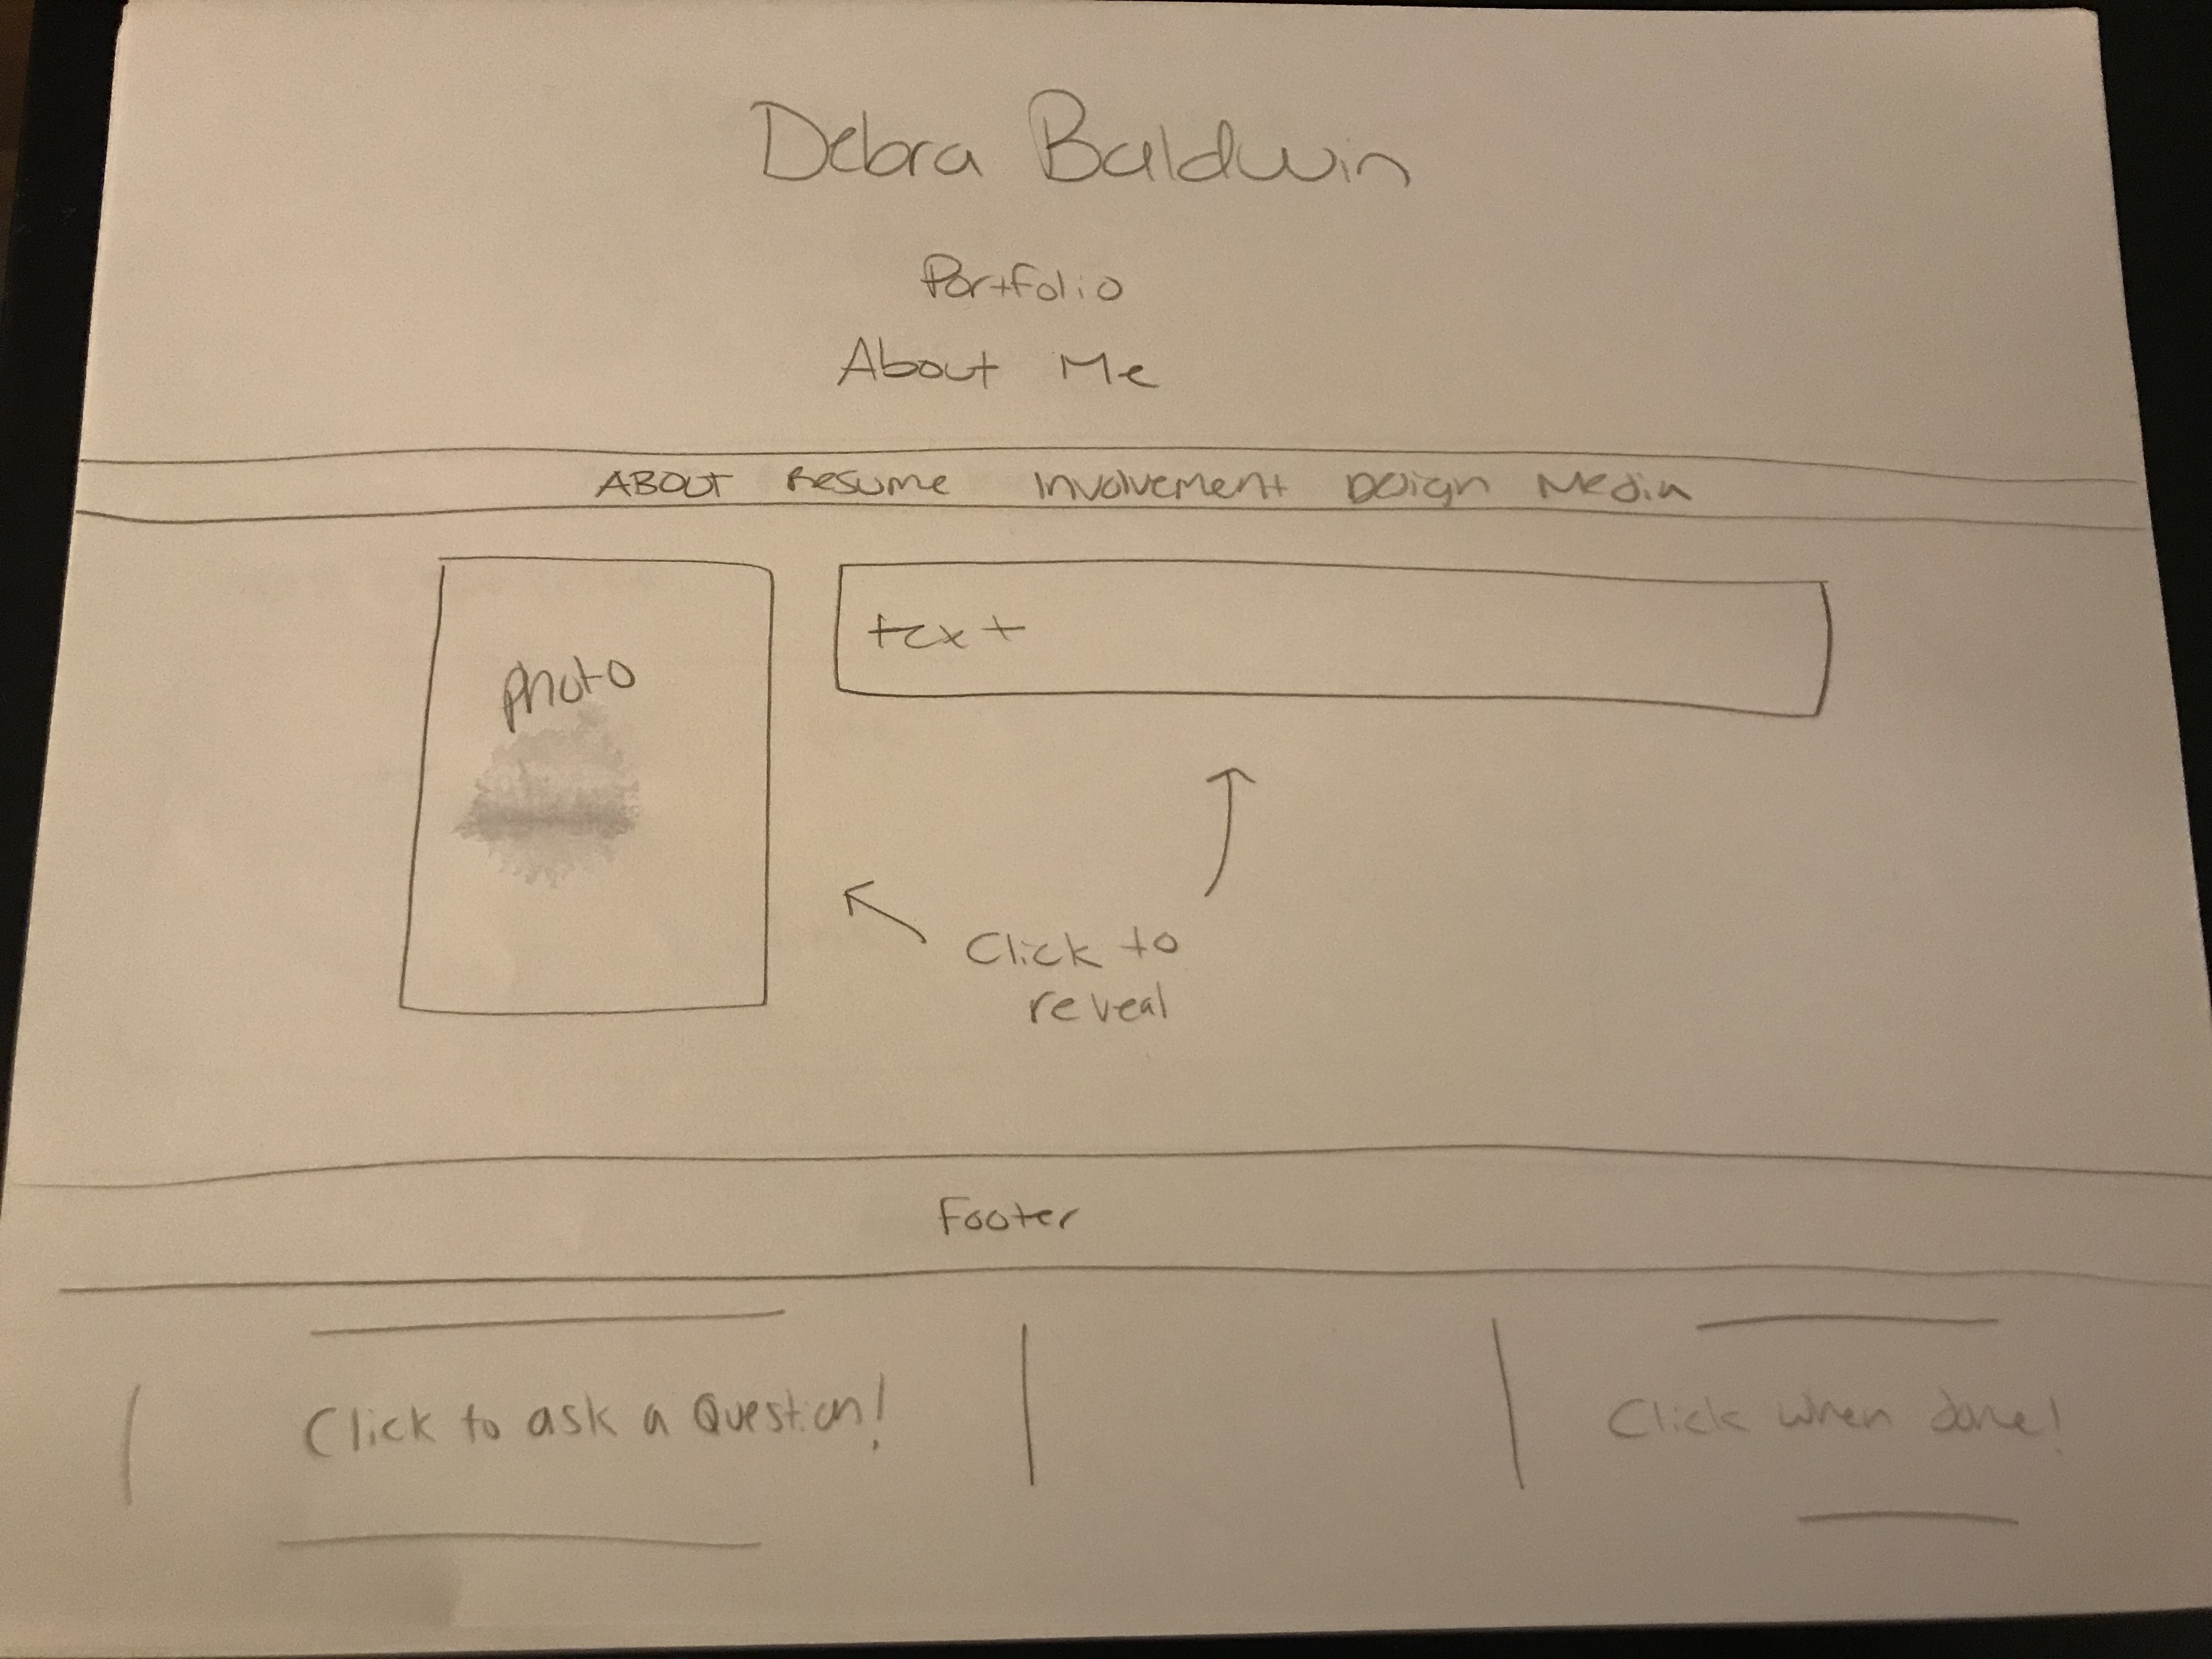 Debra Baldwin
Portfolio
About Me
ABOUT Resume Involvement Design Media
Photo
text
Click to
reveal
Footer
Click to ask a Question!
Click when done!